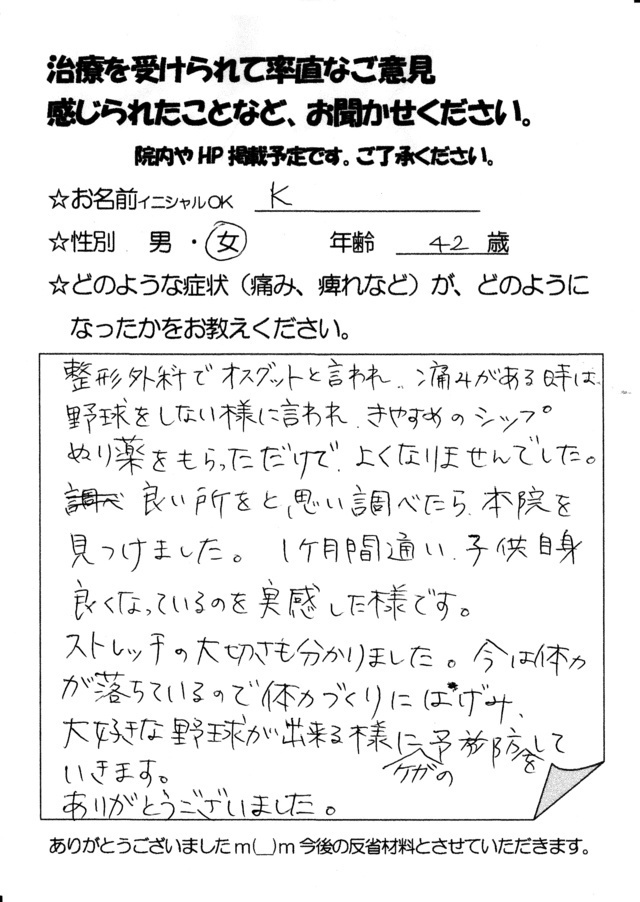 治療を受けられて率直なご意見
感じられたことなど、お聞かせください。
院内やHP掲載予定です。ご了承ください。
☆お名前イニシャルOK K
☆性別 男・女 年齢 42 歳
☆どのような症状（痛み、痺れなど）が、どのように
なったかをお教えください。
整形外科でオスグットと言われ、痛みがある時は
野球をしない様に言われ、きやすめのシップ
ぬり薬をもらっただけで、よくなりませんでした。
調べ 良い所をと、思い調べたら、本院を
見つけました。 1ヶ月間通い、子供自身
良くなっているのを実感した様です。
ストレッチの大切さも分かりました。今は体力
が落ちているので体力づくりにはげみ、
大好きな野球が出来る様にケガの予防をして
いきます。
ありがとうございました。
ありがとうございましたm(__)m今後の反省材料とさせていただきます。